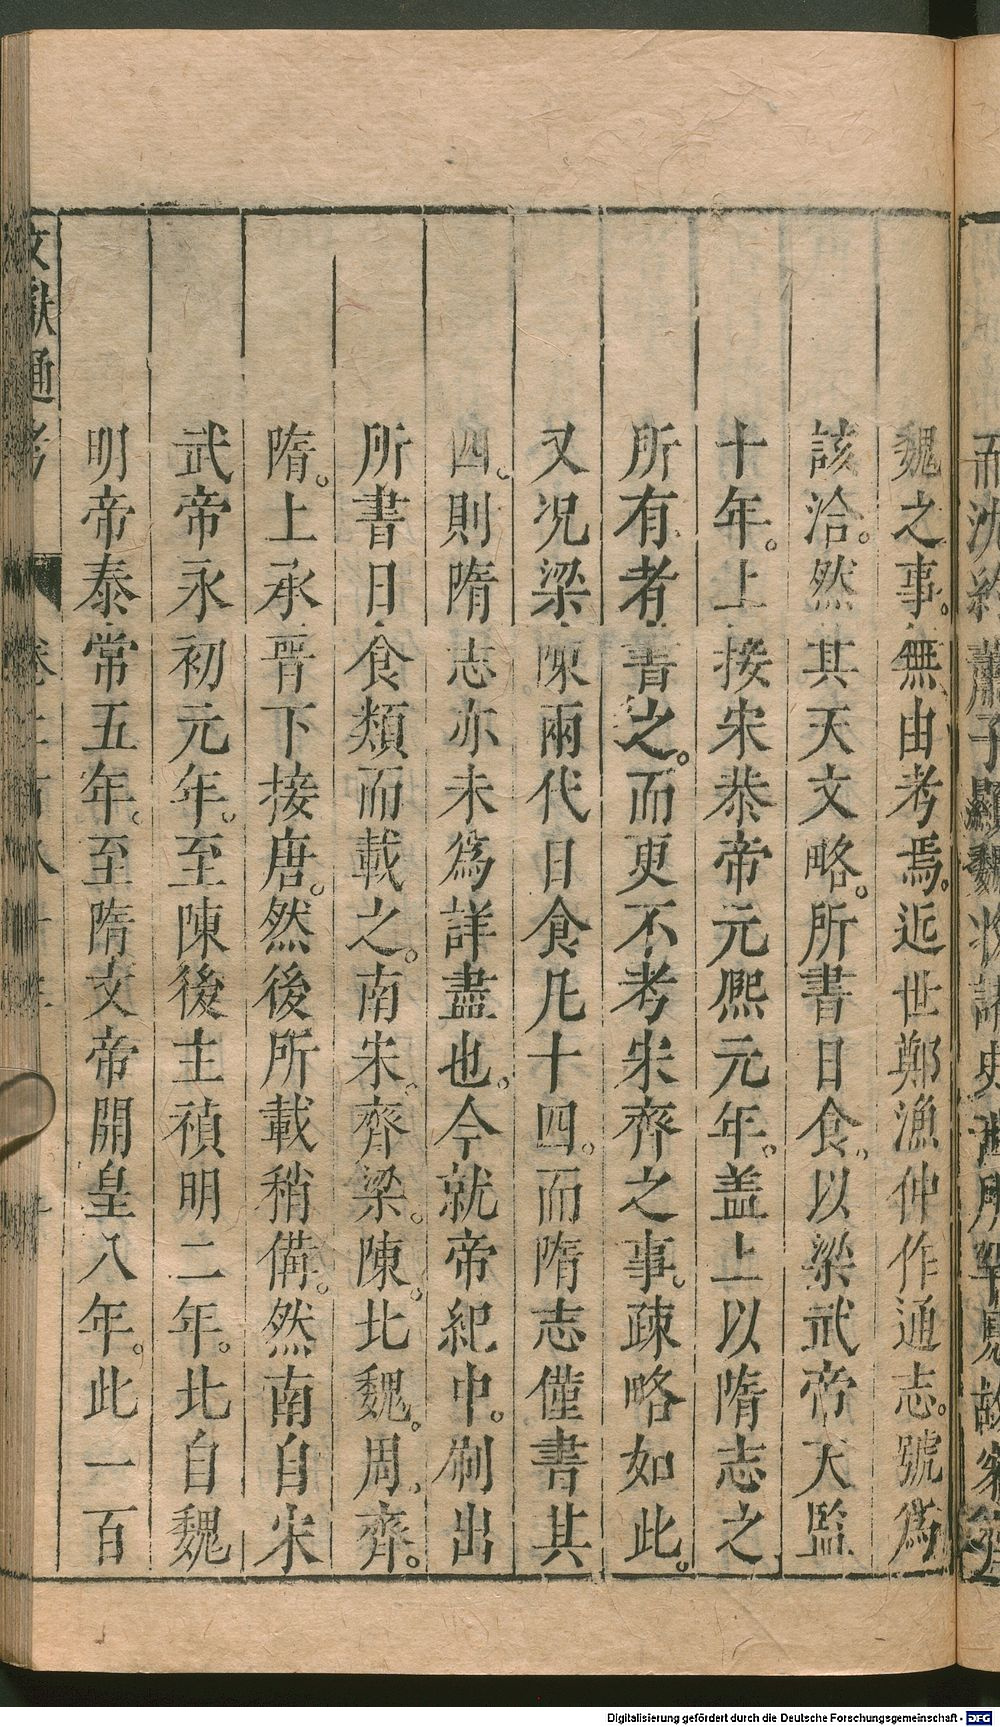 魏之事。無由考焉。近世鄭漁仲作通志。號爲
該洽。然其天文略。所書日食。以梁武帝天監
十年。上接宋恭帝元熙元年。盖上以隋志之
所有者書之。而更不考宋齊之事。疎略如此。
又况梁陳兩代日食凡十四。而隋志僅書其
四。則隋志亦未爲詳盡也。今就帝紀中。刷出
所書日食類而載之。南宋。齊梁。陳。北魏。周。齊。
隋。上承晉下接唐。然後所載稍備。然南自宋
武帝永初元年。至陳後主禎明二年。北自魏
明帝泰常五年。至隋文帝開皇八年。此一百
文獻通考
Digitalisierung gefördert durch die Deutsche Forschungsgemeinschaft - DFG